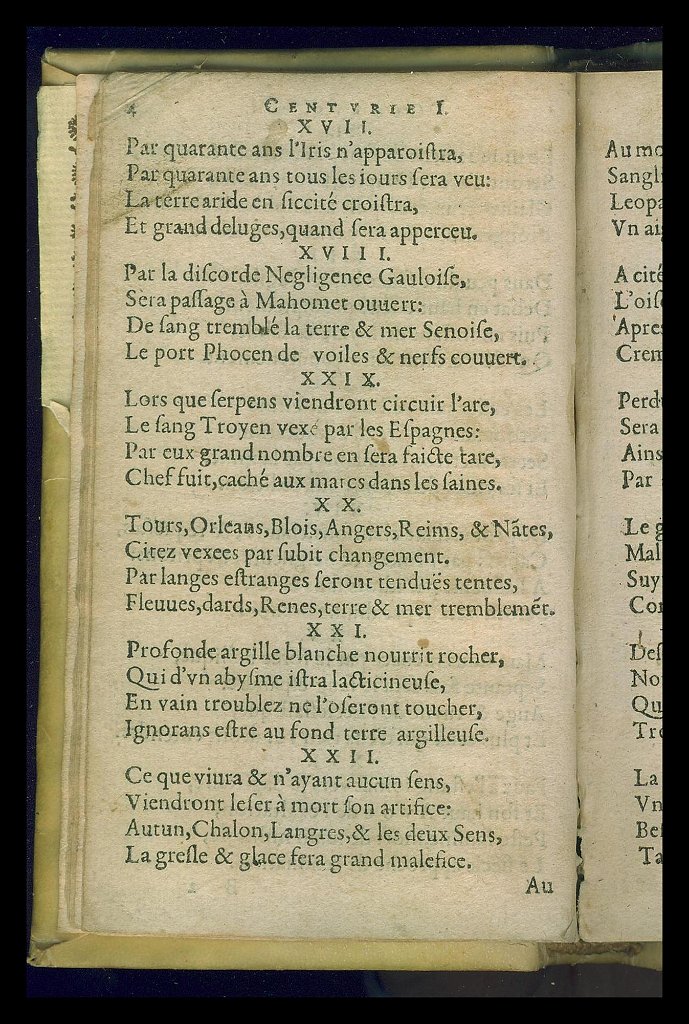 4 CENTVRIE I.
XVII.
Par quarante ans l'Iris n'apparoiſtra,
Par quarante ans tous les iours ſera veu:
La terre aride en ſiccité croiſtra,
Et grand deluges,quand ſera apperceu.
XVIII.
Par la diſcorde Negligence Gauloiſe,
Sera paſſage à Mahomet ouuert:
De ſang tremblé la terre & mer Senoiſe,
Le port Phocen de voiles & nerfs couuert.
XXIX.
Lors que ſerpens viendront circuir l'are,
Le ſang Troyen vexé par les Eſpagnes:
Par eux grand nombre en ſera faicte tare,
Chef fuit,caché aux marcs dans les ſaines.
XX.
Tours,Orleans,Blois,Angers,Reims, & Nātes,
Citez vexees par ſubit changement.
Par langes eſtranges ſeront tenduës tentes,
Fleuues,dards,Renes,terre & mer tremblemēt.
XXI.
Profonde argille blanche nourrit rocher,
Qui d'vn abyſme iſtra lacticineuſe,
En vain troublez ne l'oſeront toucher,
Ignorans eſtre au fond terre argilleuſe.
XXII.
Ce que viura & n'ayant aucun ſens,
Viendront leſer à mort ſon artifice:
Autun,Chalon,Langres,& les deux Sens,
La greſle & glace fera grand malefice.
Au
Au mo
Sangl
Leopa
Vn ai
A cité
L'oiſ
Apres
Crem
Perd
Sera
Ains
Par
Le g
Mal
Suy
Co
Deſ
No
Qu
Tr
La
Vn
Be
Ta